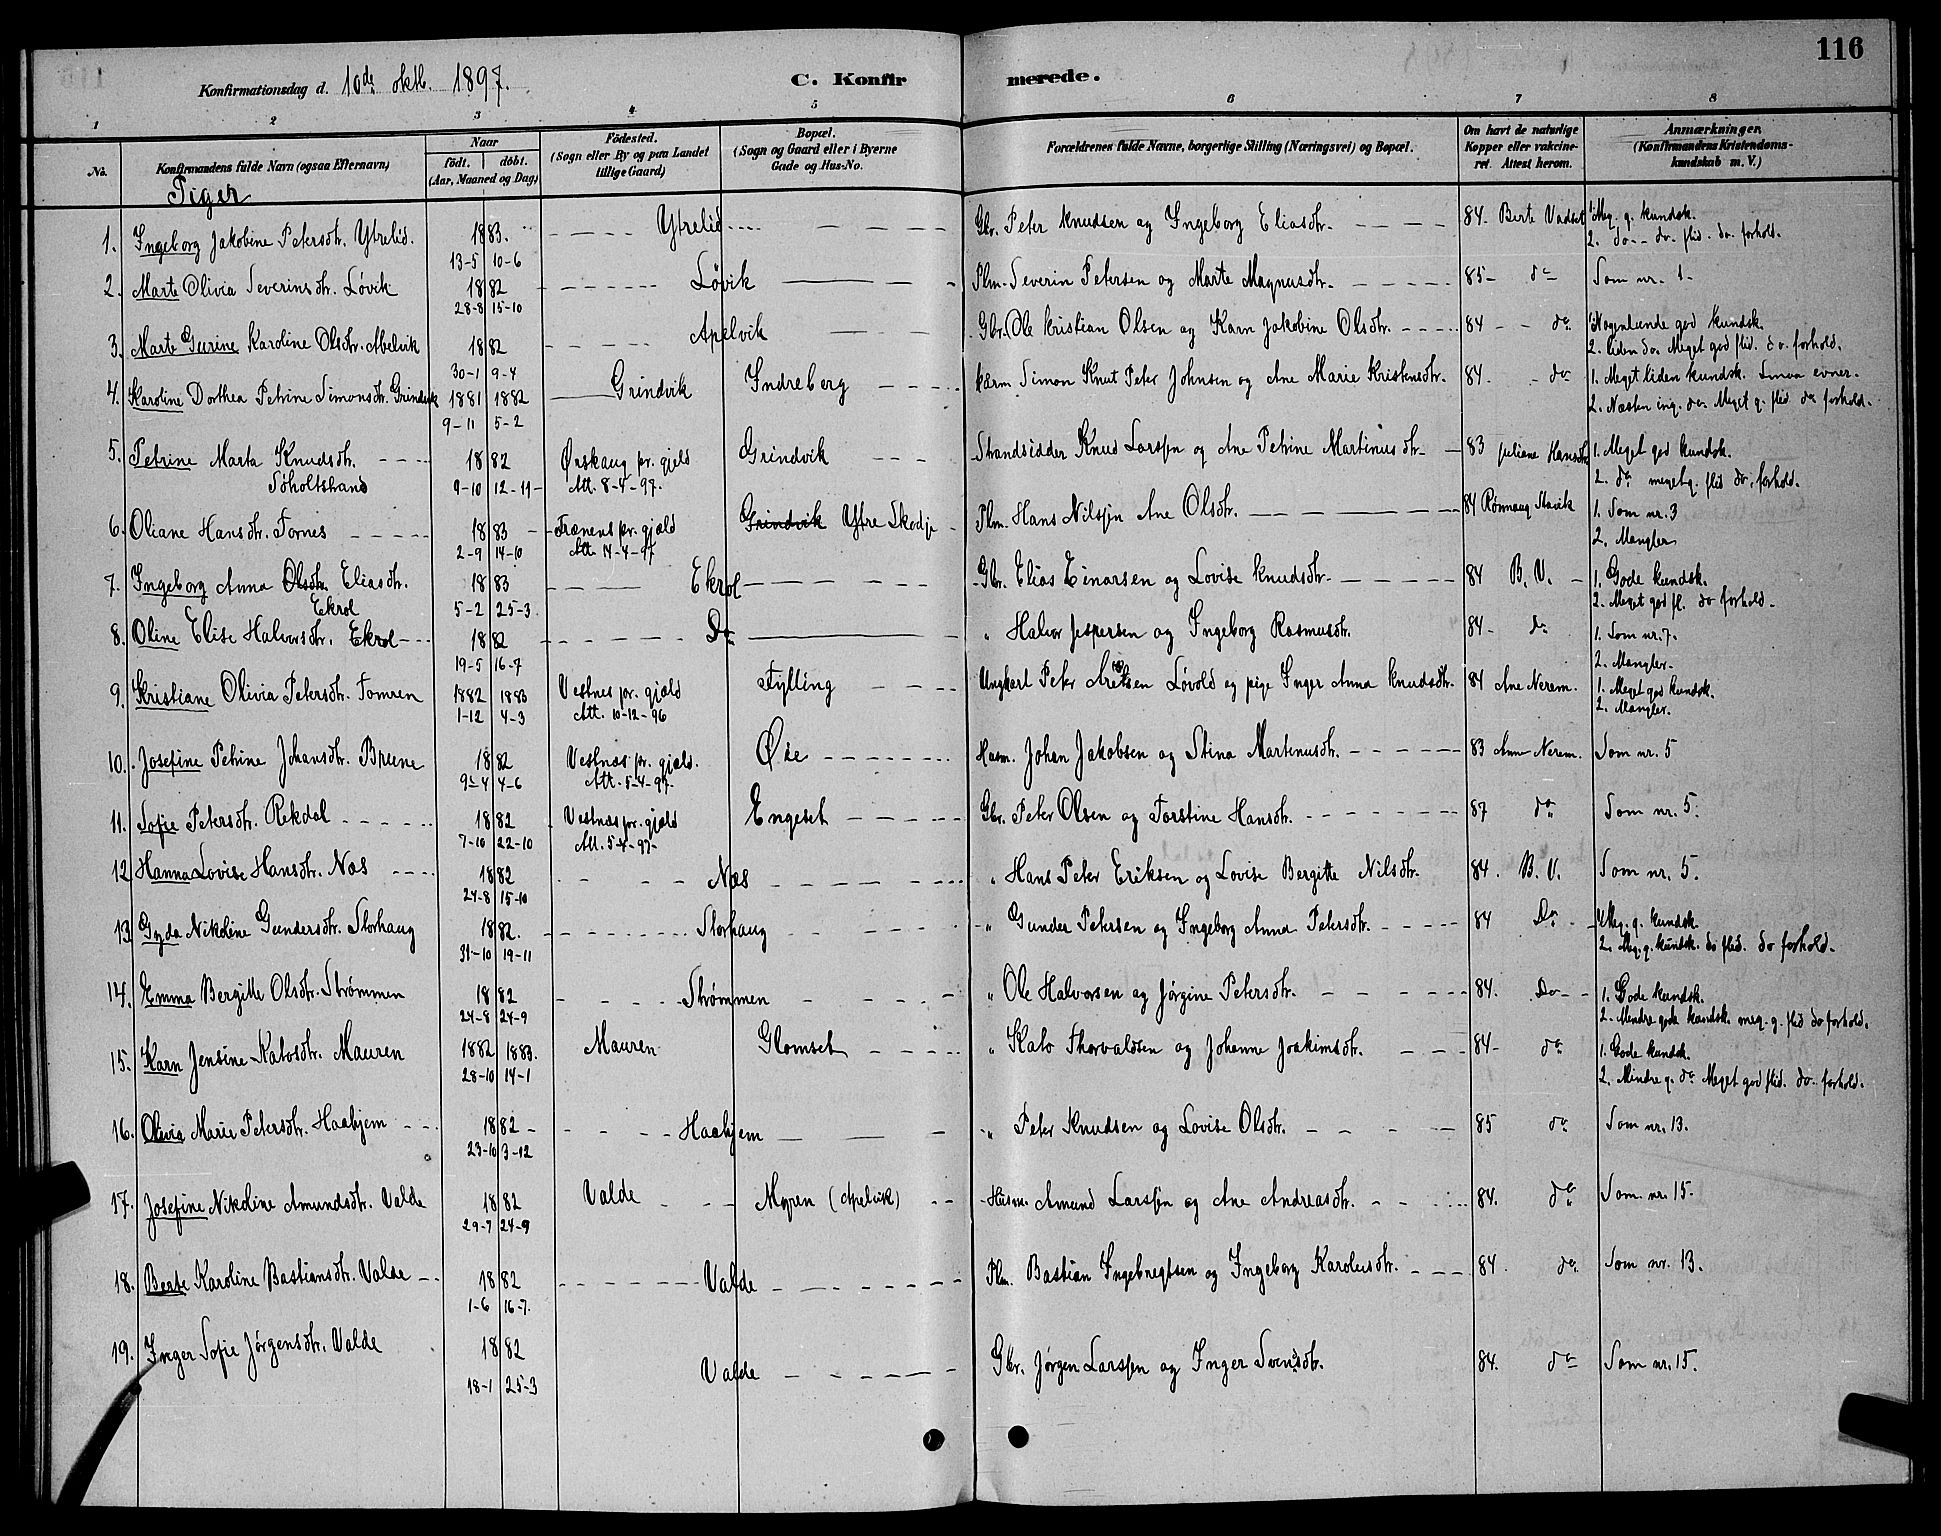 116
Konfirmationsdag d. 10de oktb. 1897.
C. Konfirmerede.
1 2 3 4 5 6 7 8
No. Konfirmandens fulde Navn (ogsaa Efternavn) Naar födt. döbt. (Aar, Maaned og Dag) Födested. (Sogn eller By og paa Landet tillige Gaard) Bopæl. (Sogn og Gaard eller i Byerne Gade og Hus-No. Forældrenes fulde Navne, borgerlige Stilling (Næringsvei) og Bopæl. Om havt de naturlige Kopper eller vakcineret. Attest herom. Anmærkninger. (Konfirmandens Kristendomskundskab m. V.)
Piger
1. Ingeborg Jakobine Petersdtr. Ytrelid. 1883. Ytrelid Gbr. Peter Knudsen og Ingeborg Eliasdtr. 84. Berte Vadset 1. Meg. g. kundsk.
13-5 10-6 2. do - do flid. do. forhold.
2. Marte Olivia Severinsdtr. Løvik 1882 Løvik Plm. Severin Petersen og Marte Magnusdtr. 85 do Som nr. 1
28-8 15-10
3. Marte Gurine Karoline Olsdtr. Abelvik 1882 Apelvik Gbr. Ole Kristian Olsen og Karn Jakobine Olsdtr. 84 do 1. Nogenlunde god kundsk.
30-1 9-4 2. liden do. Meget god flid. do. forhold.
4. Karoline Dorthea Petrine Simonsdtr. Grindvik 1881 1882 Grindvik Indreberg Simon Knut Peter Johnsen og Ane Marie Kristensdtr. 84. do 1. Meget liden kundsk. Smaa evner.
9-11 5-2 2. Næsten ing. do. Meget g. flid do forhold.
5. Petrine Marta Knudsdtr. 1882 Ørskaug pr. gjeld Grindvik Strandsidder Knud Larssen og Ane Petrine Martinusdtr. 83 Juliane Hansdtr 1. Meget god kundsk.
Søholtstrand 9-10 12-11 Att. 8-4-97. 2. do meget g. flid do. forhold.
6. Oliane Hansdtr. Tornes 1883 Frænens pr. gjæld Grindvik Ytre Skodje Plm. Hans Nilssen Ane Olsdtr. 84 Rønnaug Slavik 1. Som nr. 3
2-9 14-10 Att. 14-4-97 2. Mangler
7. Ingeborg Anna Olsdtr. Eliasdtr. 1883 Ekrol Gbr. Elias Einarsen og Lovise Knudsdtr. 84 B. V. 1. Gode kundsk.
Ekrol 5-2 25-3. 2. Meget god fl. do forhold.
8. Oline Elise Halvorsdtr. Ekrol 1882 Do " Halvor Jespersen og Ingeborg Rasmusdtr. 84 do 1. Som nr. 7.
19-5 16-7 2. Mangler.
9. Kristiane Olivia Petersdtr. Tomren 1882 1883 Vestnes pr. gjæld Fylling Ungkarl Peter Løvold og pige Inger Anna Knudsdtr. 84 Ane Nerem. 1. Meget god kundsk.
1-12 4-3 Att. 10-12-96 2. Mangler.
10. Josefine Petrine Johansdtr. Brune 1882 Vestnæs pr. gjæld. Øie Husm. Johan Jakobsen og Stina Martinusdtr. 83 Anne Nerem. Som nr. 5
9-4 4-6 Att. 5-4-97.
11. Sofie Petersdtr. Rekdal 1882 Vestnæs pr. gjæld Engeset Gbr. Peter Olsen og Torstine Hansdtr. 87 do Som nr. 5.
7-10 22-10 Att. 5-4-97.
12. Hanna Lovise Hansdtr. Næs 1882 Næs " Hans Peter Eriksen og Lovise Bergitte Nilsdtr. 84. B. V. Som nr. 5.
24-8 15-10
13. Gyda Nikoline Gundersdtr. Storhaug 1882. Storhaug " Gunder Petersen og Ingeborg Anna Petersdtr. 84 Do 1. Meg. g. kundsk.
31-10 19-11 2. Meg. g. kundsk. do flid. do forhold.
14. Emma Bergitte Olsdtr. Strømmen 1882 Strømmen " Ole Halvorsen og Jørgine Petersdtr. 84. Do 1. Gode kundsk.
24-8 24-9 2. Mindre gode kundsk. meg. g. flid do forhold.
15. Karn Jensine Katosdtr. Mauren 1882 1883. Mauren Glomset " Kato Thorvaldsen og Johanne Joakimsdtr. 84 do 1. Gode kundsk.
28-10 14-1 2. Mindre g. do Meget god flid. do. forhold.
16. Olivia Marie Petersdtr. Haabjem 1882 Haabjem " Peter Knudsen og Lovise Olsdtr. 85 do Som nr. 13.
23-10 3-12
17. Josefine Nikoline Amundsdtr. Valde 1882 Valde Myren (Apelvik) Husm. Amund Larssen og Ane Andreasdtr. 84. do Som nr. 15.
29-7 24-9
18. Berte Karoline Bastiansdtr. Valde 1882 Valde Plm. Bastian Ingebregtsen og Ingeborg Karolusdtr. 84. do Som nr. 13.
1-6 16-7.
19. Inger Sofie Jørgensdtr. Valde 1882 Valde Gbr. Jørgen Larssen og Inger Svensdtr. 84. do Som nr. 15.
18-1 25-3